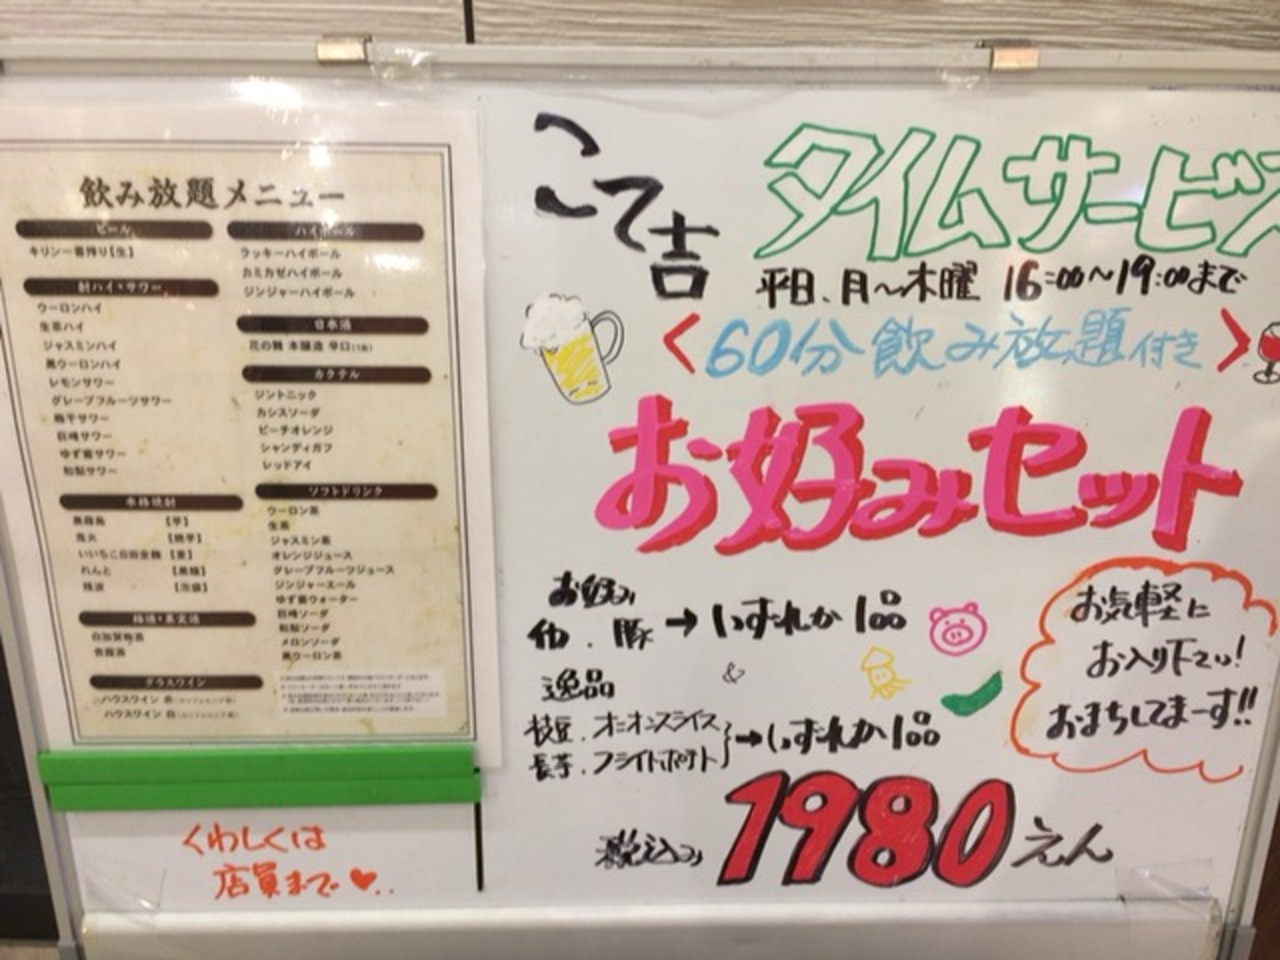 飲み放題メニュー
ビール
キリン一番搾り【生】
酎ハイ・サワー
ウーロンハイ
生茶ハイ
ジャスミンハイ
黒ウーロンハイ
レモンサワー
グレープフルーツサワー
梅干サワー
巨峰サワー
ゆず蜜サワー
和梨サワー
本格焼酎
黒霧島 【芋】
鬼火 【焼芋】
いいちこ日田全麹 【麦】
れんと 【黒糖】
残波 【泡盛】
梅酒・果実酒
白加賀梅酒
杏露酒
グラスワイン
ハウスワイン 赤(カリフォルニア産)
ハウスワイン 白(カリフォルニア産)
ハイボール
ラッキーハイボール
カミカゼハイボール
ジンジャーハイボール
日本酒
花の舞 本醸造 辛口(1合)
カクテル
ジントニック
カシスソーダ
ピーチオレンジ
シャンディガフ
レッドアイ
ソフトドリンク
ウーロン茶
生茶
ジャスミン茶
オレンジジュース
グレープフルーツジュース
ジンジャーエール
ゆず蜜ウォーター
巨峰ソーダ
和梨ソーダ
メロンソーダ
黒ウーロン茶
くわしくは
店員まで♥..
こて吉
タイムサービス
平日、月〜木曜 16:00〜19:00まで
<60分飲み放題付き>
お好みセット
お好み
他、豚→いずれか1品
&
逸品
枝豆、オニオンスライス
長芋、フライドポテト}→いずれか1品
税込み1980えん
お気軽に
お入り下さい!
おまちしてまーす!!